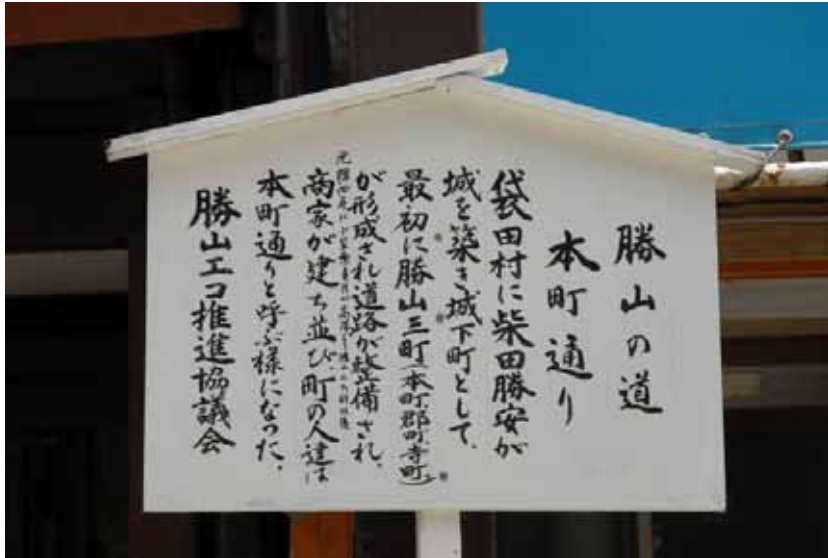 勝山の道
本町通り
袋田村に柴田勝安が
城を築き城下町として、
最初に勝山三町(本町郡町寺町)
が形成され道路が整備され、
商家が建ち並び町の人達は
本町通りと呼ぶ様になった。
勝山エコ推進協議会